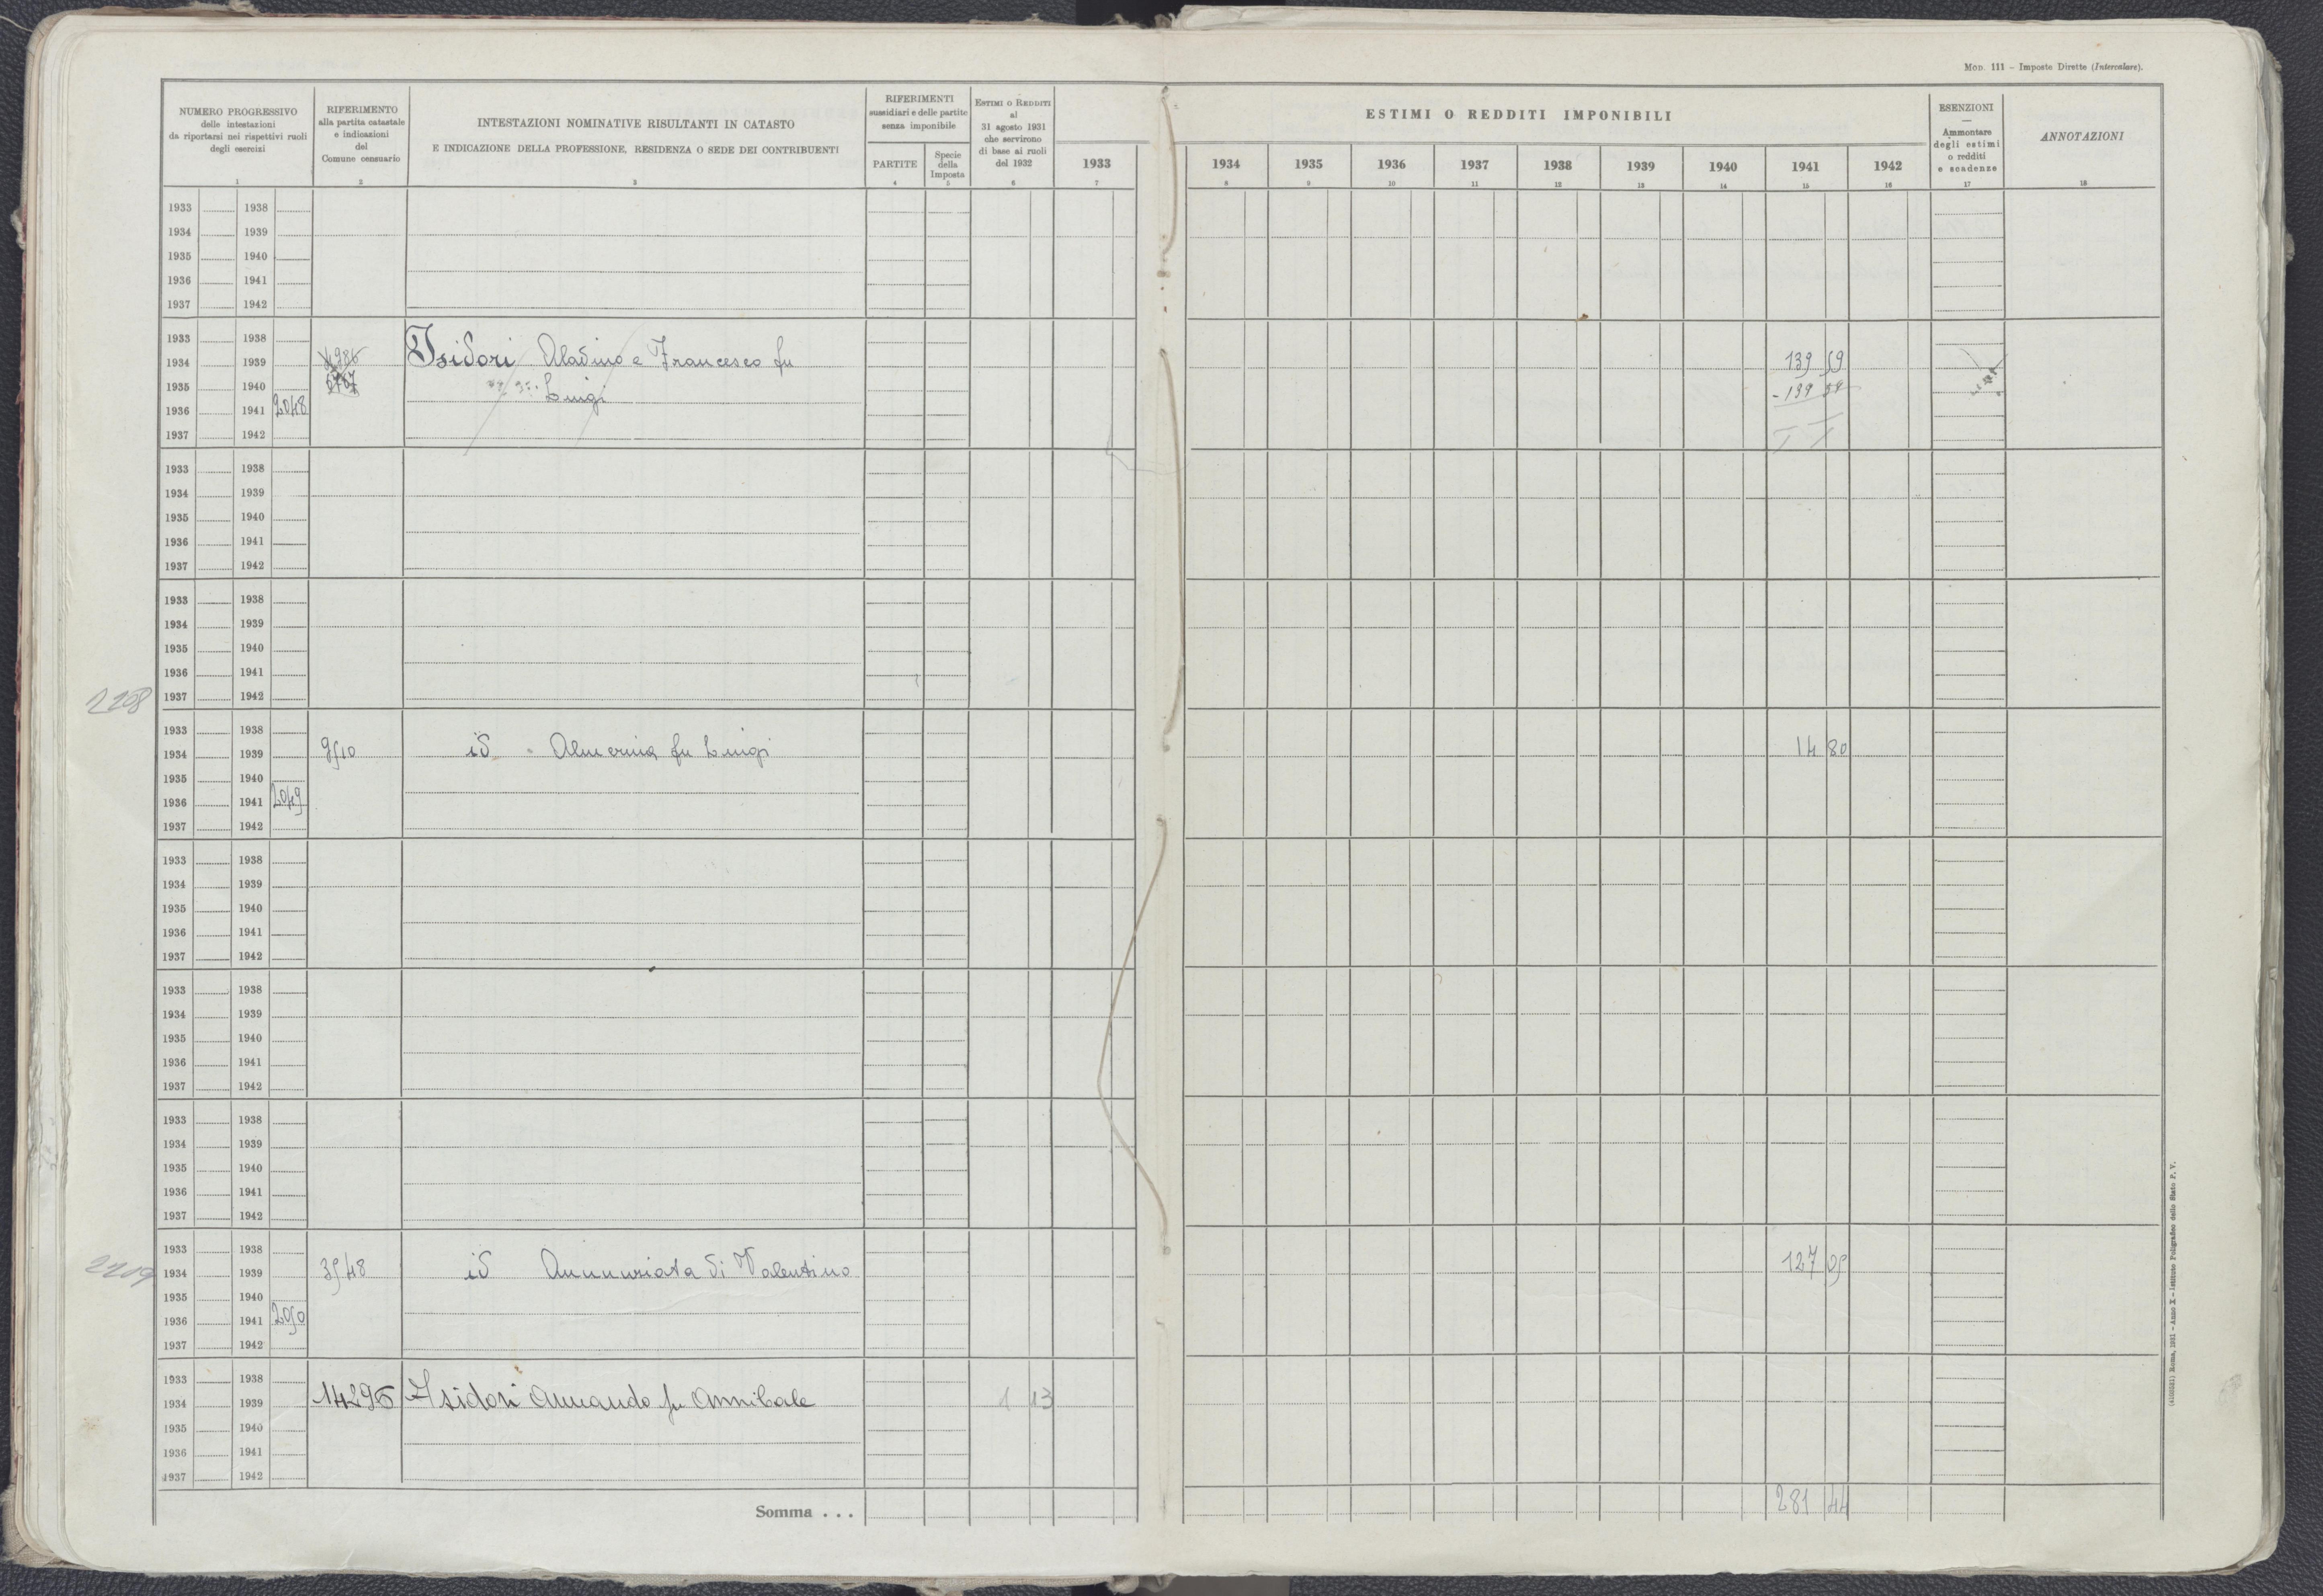 Mod. 111 – Imposte Dirette (Intercalare).
NUMERO PROGRESSIVO
delle intestazioni
da riportarsi nei rispettivi ruoli
degli esercizi
1
RIFERIMENTO
alla partita catastale
e indicazioni
del
Comune censuario
2
INTESTAZIONI NOMINATIVE RISULTANTI IN CATASTO
E INDICAZIONE DELLA PROFESSIONE, RESIDENZA O SEDE DEI CONTRIBUENTI
3
RIFERIMENTI
sussidiari e delle partite
senza imponibile
PARTITE
4
Specie
della
Imposta
5
Estimi o Redditi
al
31 agosto 1931
che servirono
di base ai ruoli
del 1932
6
ESTIMI O REDDITI IMPONIBILI
1933 1934 1935 1936 1937 1938 1939 1940 1941 1942
7 8 9 10 11 12 13 14 15 16
ESENZIONI
—
Ammontare
degli estimi
o redditi
e scadenze
17
ANNOTAZIONI
18
1933 1938
1934 1939
1935 1940
1936 1941
1937 1942
1933 1938
1934 1939 4986 Isidori Aladino e Francesco fu 139 59
1935 1940 Luigi - 139 59
1936 1941 2048
1937 1942
1933 1938
1934 1939
1935 1940
1936 1941
1937 1942
1933 1938
1934 1939
1935 1940
1936 1941
1937 1942
2208
1933 1938
1934 1939 9510 id. Almerina fu Luigi 14 80
1935 1940
1936 1941 2049
1937 1942
1933 1938
1934 1939
1935 1940
1936 1941
1937 1942
1933 1938
1934 1939
1935 1940
1936 1941
1937 1942
1933 1938
1934 1939
1935 1940
1936 1941
1937 1942
1933 1938
2209 1934 1939 3548 id Annunziata di Valentino 127 05
1935 1940
1936 1941 2050
1937 1942
1933 1938
1934 1939 14295 Isidori Armando fu Annibale 1 13
1935 1940
1936 1941
1937 1942
Somma . . . 281 44
(4105281) Roma, 1931 – Anno X – Istituto Poligrafico dello Stato P. V.